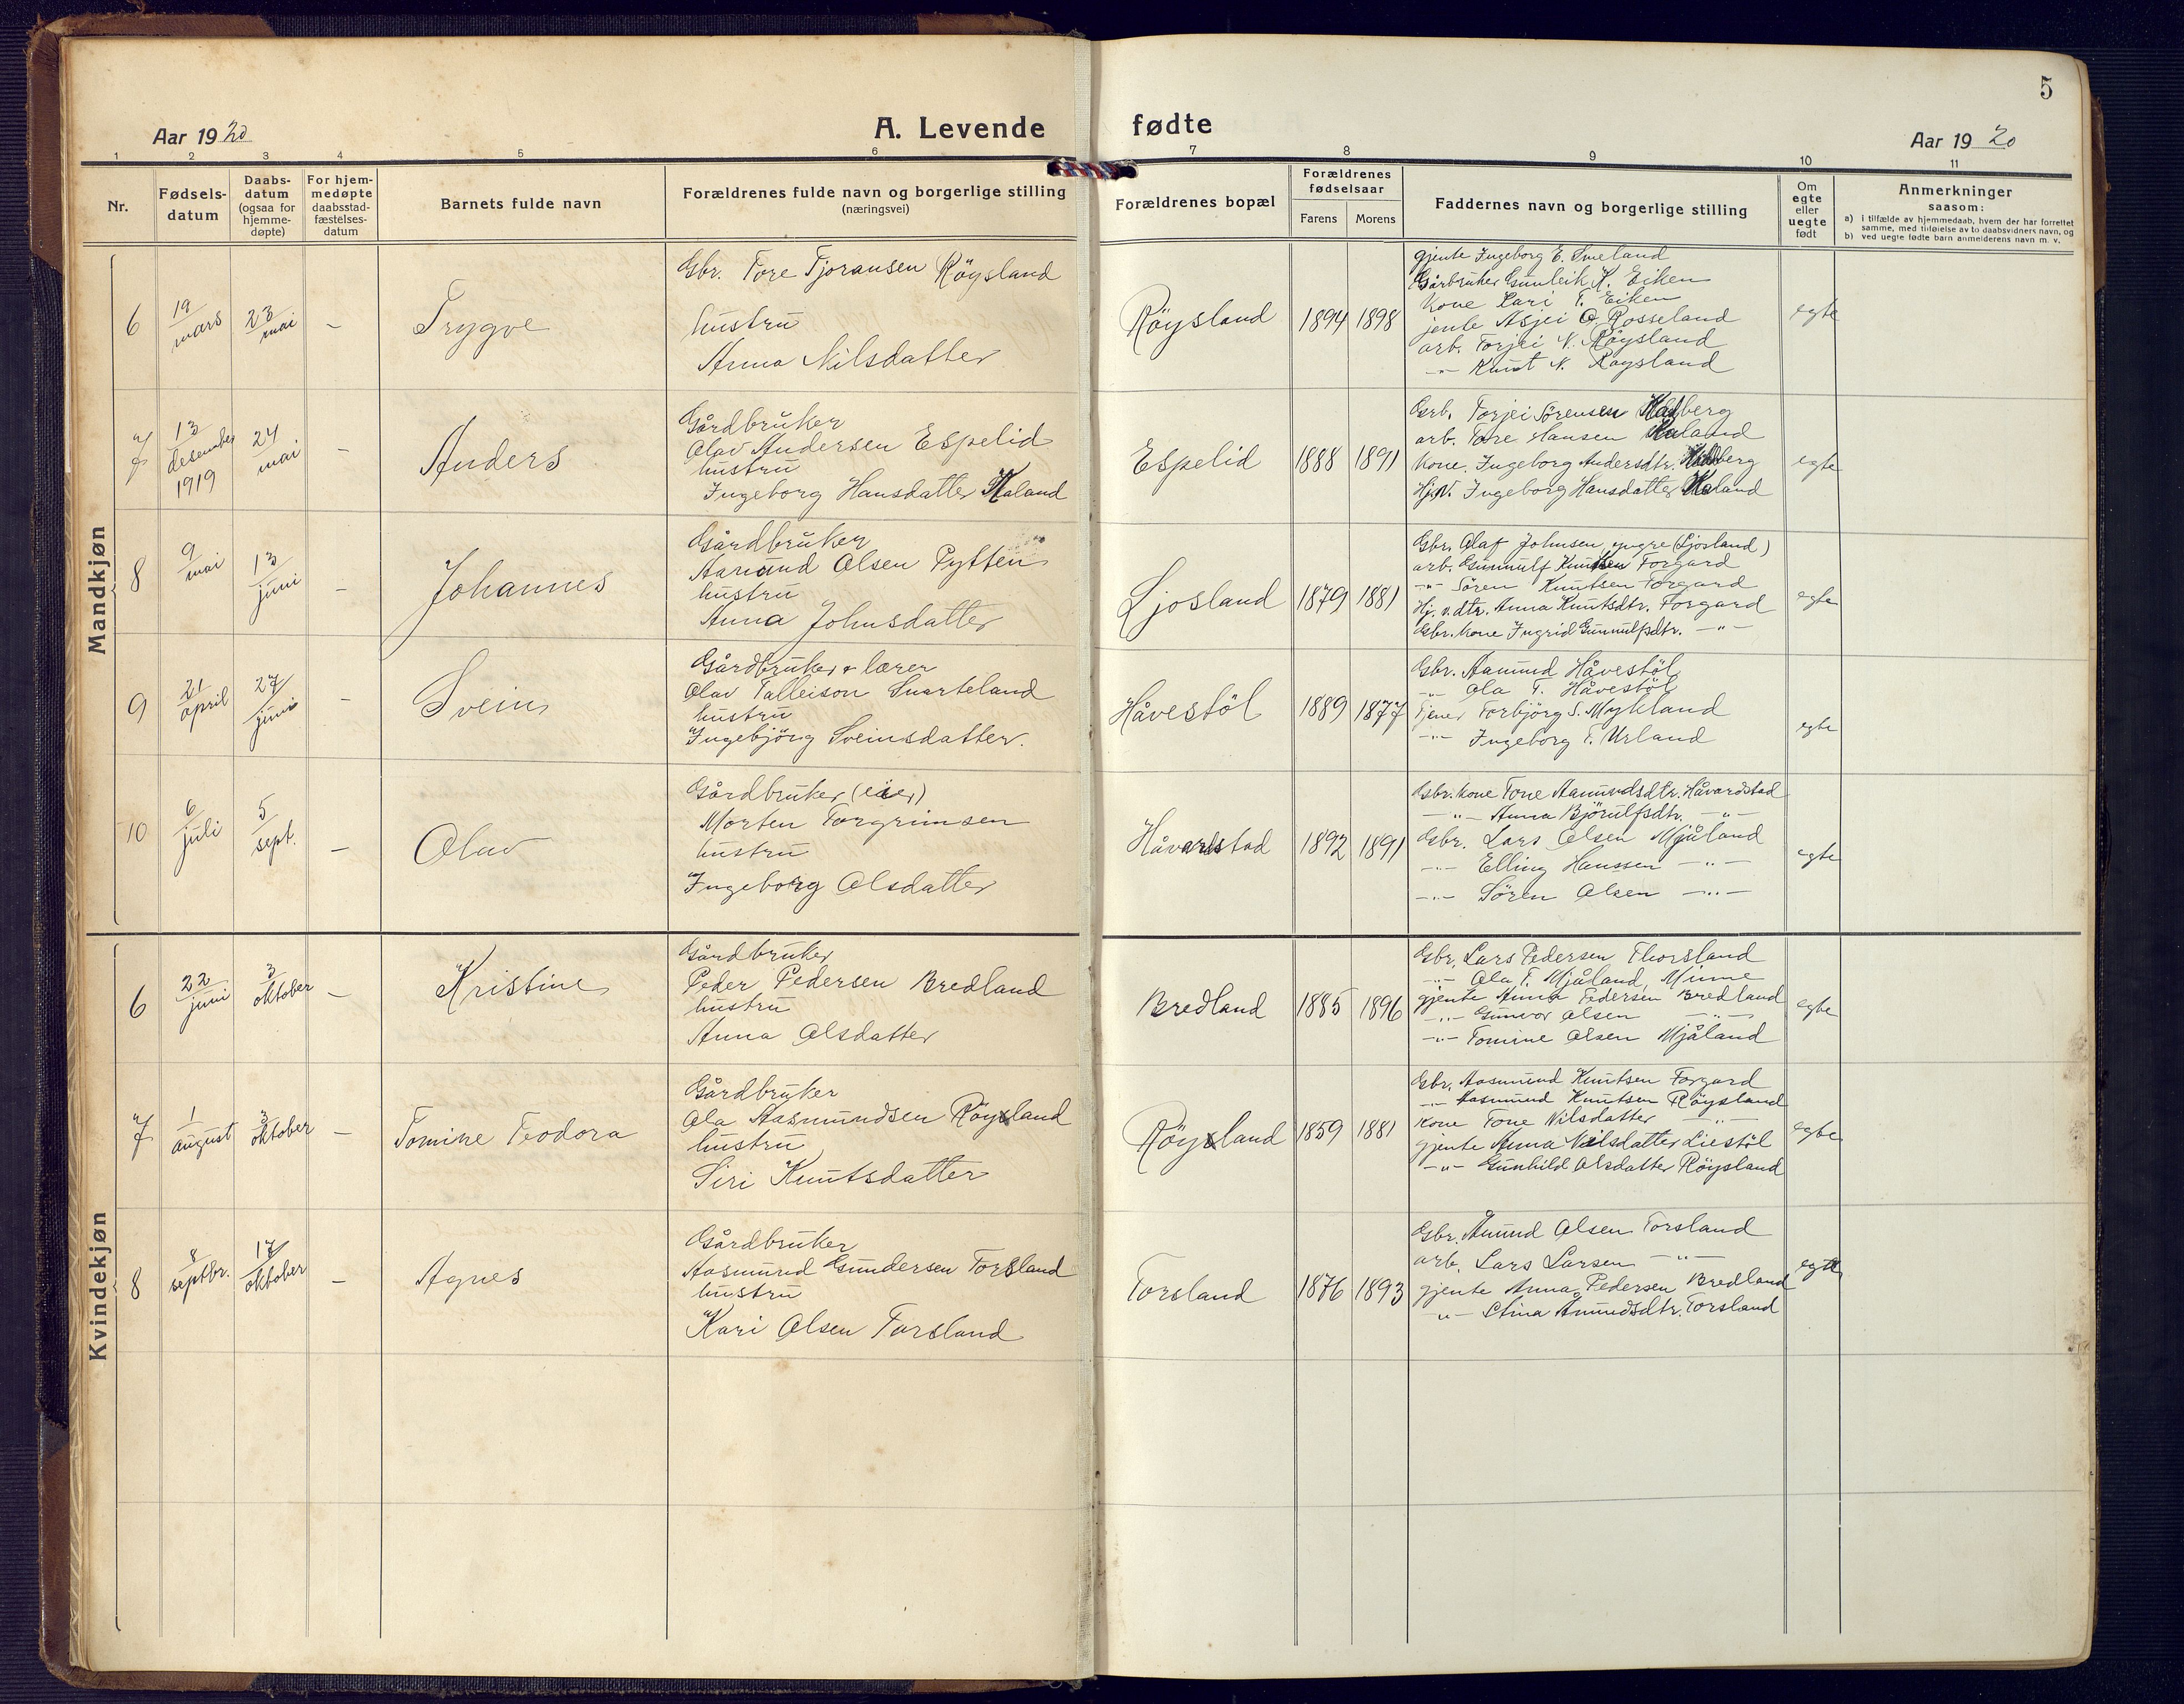 5
Aar 1920
A. Levende fødte
Aar 1920
1 2 3 4 5 6 7 8 9 10 11
Nr.
Fødsels-
datum
Daabs-
datum
(ogsaa for
hjemme-
døpte)
For hjem-
medøpte
daabsstad-
fæstelses-
datum
Barnets fulde navn
Forældrenes fulde navn og borgerlige stilling
(næringsvei)
Forældrenes bopæl
Forældrenes
fødselsaar
Farens Morens
Faddernes navn og borgerlige stilling
Om
egte
eller
uegte
født
Anmerkninger
saasom:
a) i tilfælde av hjemmedaab, hvem der har forrettet
samme, med tilføielse av to daabsvidners navn, og
b) ved uegte fødte barn anmelderens navn m. v.
Mandkjøn
6
19
mars
23
mai
-
Trygve
Gbr. Tore Tjoransen Röysland
hustru
Anna Nilsdatter
Röysland
1894 1898
gjente Ingeborg E. Smeland
Gårbruker Gunleik K. Eiken
Kone Kari T. Eiken
jente Asjei O. Rosseland
arb. Torjei N. Röysland
-"- Knut N. Röysland
egte
7
13
desember
1919
24
mai
-
Anders
Gårdbruker
Olav Andersen Espelid
hustru
Ingeborg Hansdatter Haland
Espelid
1888 1891
Grb. Torjei Sörensen
arb. Tore Hansen Haland
Kone. Ingeborg Andersdtr.
Hj.v. Ingeborg Hansdatter Haland
egte
8
9
mai
13
juni
-
Johannes
Gårdbruker
Aanund Olsen Pytten
hustru
Anna Johnsdatter
Ljosland
1879 1881
Gbr. Olaf Johnsen yngre (Ljosland)
arb. Gunnulf Knutsen Forgard
-"- Sören Knutsen Forgard
Hj. v. dtr. Anna Knutsdtr. Forgard
Gbr. Kone Ingrid Gunnulfsdtr. -"-
egte
9
21
april
27
juni
-
Svein
Gårdbruker & lærer
Olav Talleison Snarteland
hustru
Ingebjörg Sveinsdatter.
Håvestöl
1889 1877
Gbr. Aanund Håvestöl
-"- Ola T. Håvestöl
Tjener Torbjörg S. Mykland
-"- Ingeborg T. Urland
egte
10
6
juli
5
sept.
-
Olav
Gårdbruker (eier)
Morten Torgrimsen
hustru
Ingeborg Olsdatter
Håvardstad
1892 1891
Gbr. kone Tone Aanundsdtr. Håvardstad
-"- Anna Björulfsdtr. -"-
Gbr. Lars Olsen Mjåland
-"- Elling Hanssen -"-
-"- Sören Olsen -"-
egte
Kvindekjøn
6
22
juni
3
oktober
-
Kristine
Gårdbruker
Peder Pedersen Bredland
hustru
Anna Olsdatter
Bredland
1885 1896
Gbr. Lars Pedersen Thorsland
-"- Ola T. Mjåland, Minne
gjente Anna Pedersen Bredland
-"- Gunvor Olsen -"-
-"- Tomine Olsen Mjåland
egte
7
1
august
3
oktober
-
Tomine Teodora
Gårdbruker
Ola Aasmundsen Röysland
hustru
Siri Knutsdatter
Röysland
1859 1881
Gbr. Aasmund Knutsen Forgard
-"- Aasmund Knutsen Röysland
Kone Tone Nilsdatter -"-
gjente Anna Nilsdatter Liestöl
-"- Gunhild Olsdatter Röysland
egte
8
8
septbr.
17
oktober
-
Agnes
Gårdbruker
Aasmund Gundersen Torsland
hustru
Kari Olsen Torsland
Torsland
1876 1893
Gbr. Ånund Olsen Torsland
arb. Lars Larsen -"-
gjente Anna Pedersen Bredland
-"- Stina Anundsdtr. Torsland
egte